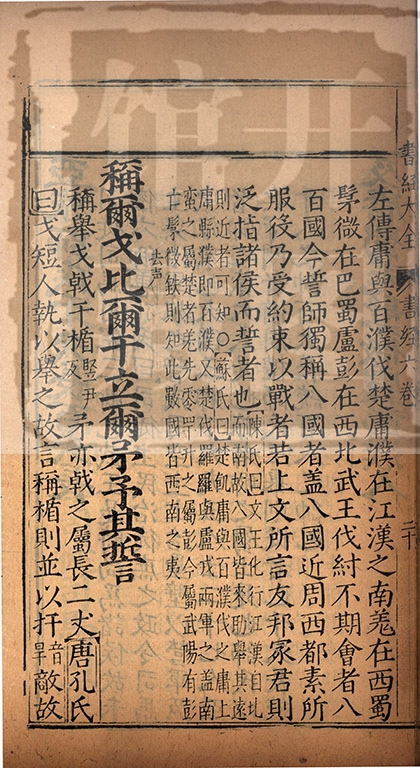 書經大全 書經六卷 二十
左傳庸與百濮伐楚庸濮在江漢之南羌在西蜀
髳微在巴蜀盧彭在西北武王伐紂不期會者八
百國今誓師獨稱八國者盖八國近周西都素所
服役乃受約束以戰者若上文所言友邦冢君則
泛指諸侯而誓者也陳氏曰文王化行江漢自北
而南故八國皆來助舉其遠
則近者可知○蘇氏曰楚飢庸與百濮伐之庸上
庸縣濮即百濮又楚伐羅羅與盧戎兩軍之盖南
蠻之屬楚者羌先零罕幵之屬彭今屬武陽有彭
亡髳微缺則知此數國皆西南之夷
稱爾戈比去声爾干立爾矛予其誓
稱舉戈戟干楯竪尹反矛亦戟之屬長二丈唐孔氏
曰戈短人執以舉之故言稱楯則並以扞音旱敵故